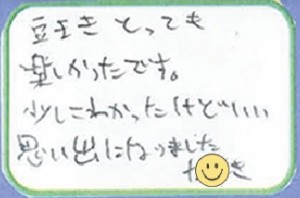 豆まき とっても
楽しかったです。
少しこわかったけどいい
思い出になりました
き